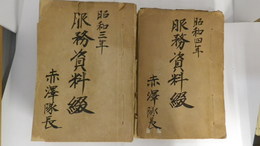 昭和三年
服務資料綴
赤澤隊長
昭和四年
服務資料綴
赤澤隊長